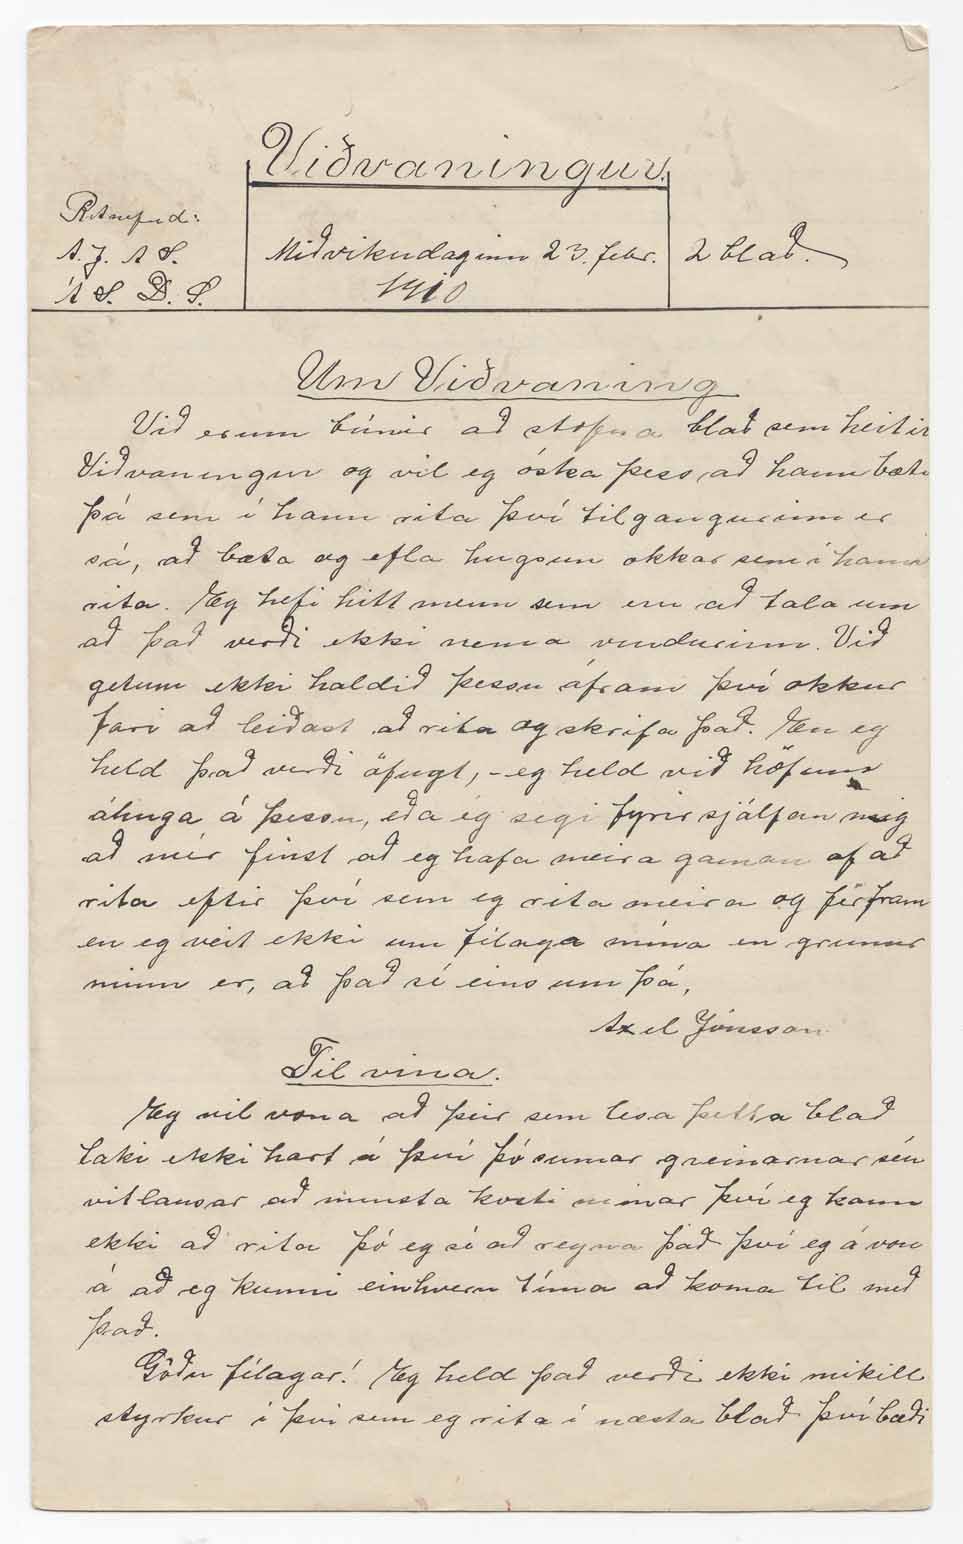 Viðvaningur.
Ritnefnd:
A. J. A S.
Á S. D. S.
Miðvikudaginn 23. febr.
1910
2 blað.
Um Viðvaning
Við erum búnir að stofna blað sem heitir
Viðvaningur og vil eg óska þess, að hann bæti
þá sem í hann rita því tilgangurinn er
sá, að bæta og efla hugsun okkar sem í hann
rita. Eg hefi hitt menn sem eru að tala um
að það verði ekki nema vindurinn. Við
getum ekki haldið þessu áfram því okkur
fari að leiðast að rita og skrifa það. En eg
held það verði öfugt, - eg held við höfum
áhuga á þessu, eða eg segi fyrir sjálfan mig
að mér finst að eg hafa meira gaman af að
rita eftir því sem eg rita meira og fer fram
en eg veit ekki um félaga mína en grunur
minn er, að það sé eins um þá,
Axel Jónsson
Til vina.
Eg vil vona að þeir sem lesa þetta blað
taki ekki hart á því þó sumar greinarnar séu
vitlausar að minsta kosti mínar því eg kann
ekki að rita þó eg sé að reyna það því eg á von
á að eg kunni einhvern tíma að koma til með
það.
Góðu félagar! Eg held það verði ekki mikill
styrkur í því sem eg rita í næsta blað því bæði